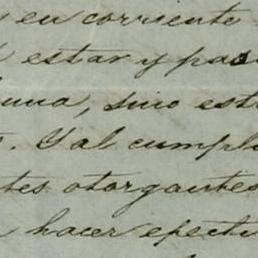 en corriente
estar y pas
una, sino est
. Y al cumpl
tes otorgantes
hacer efecti